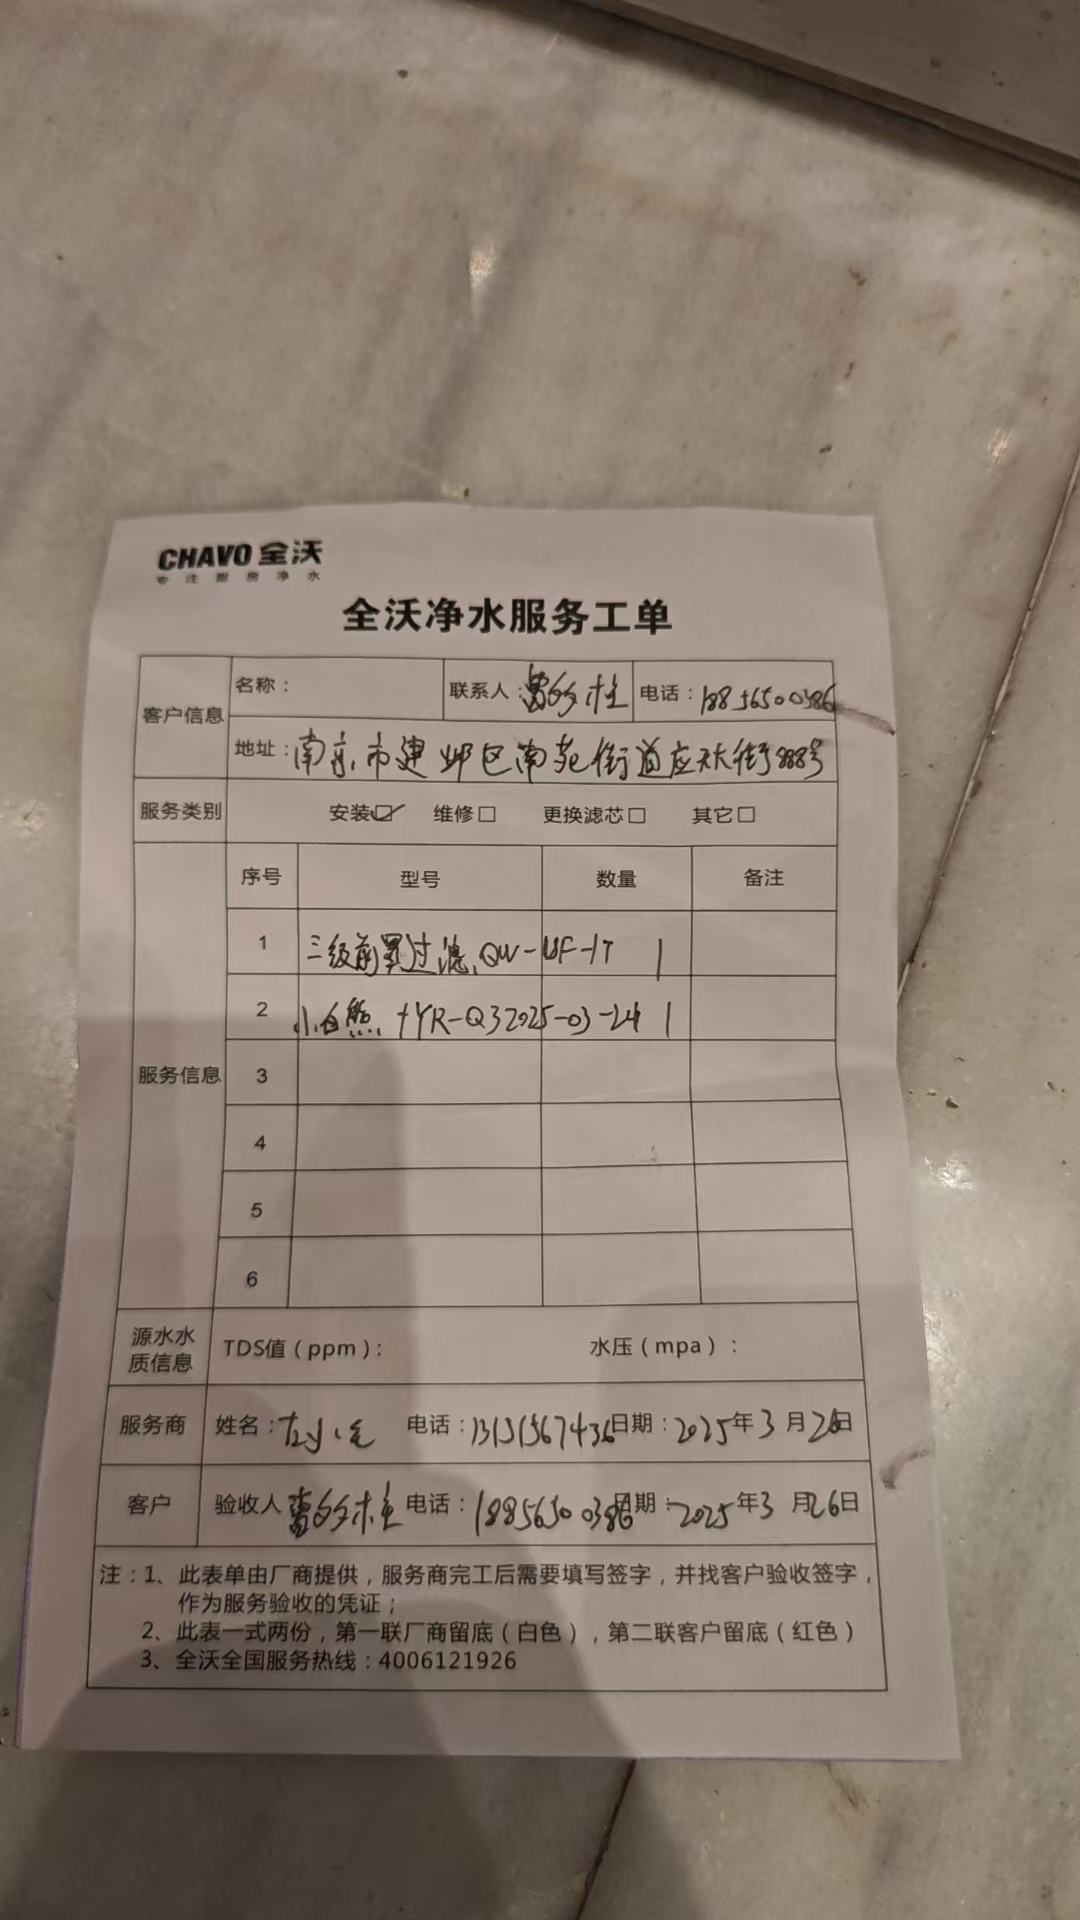 CHAVO 全沃
专注厨房净水
全沃净水服务工单
客户信息
名称： 联系人： 电话：18856500386
地址：南京市建邺区南苑街道应天大街888号
服务类别 安装☑ 维修□ 更换滤芯□ 其它□
服务信息
序号 型号 数量 备注
1 三级前置过滤、QW-UF-1T 1
2 小白熊 YR-Q3 2025-03-24 1
3
4
5
6
源水水质信息 TDS值（ppm）： 水压（mpa）：
服务商 姓名： 电话：13151567436 日期：2025年3月26日
客户 验收人 电话：18856500386 日期：2025年3月26日
注：1、此表单由厂商提供，服务商完工后需要填写签字，并找客户验收签字，
作为服务验收的凭证；
2、此表一式两份，第一联厂商留底（白色），第二联客户留底（红色）
3、全沃全国服务热线：4006121926